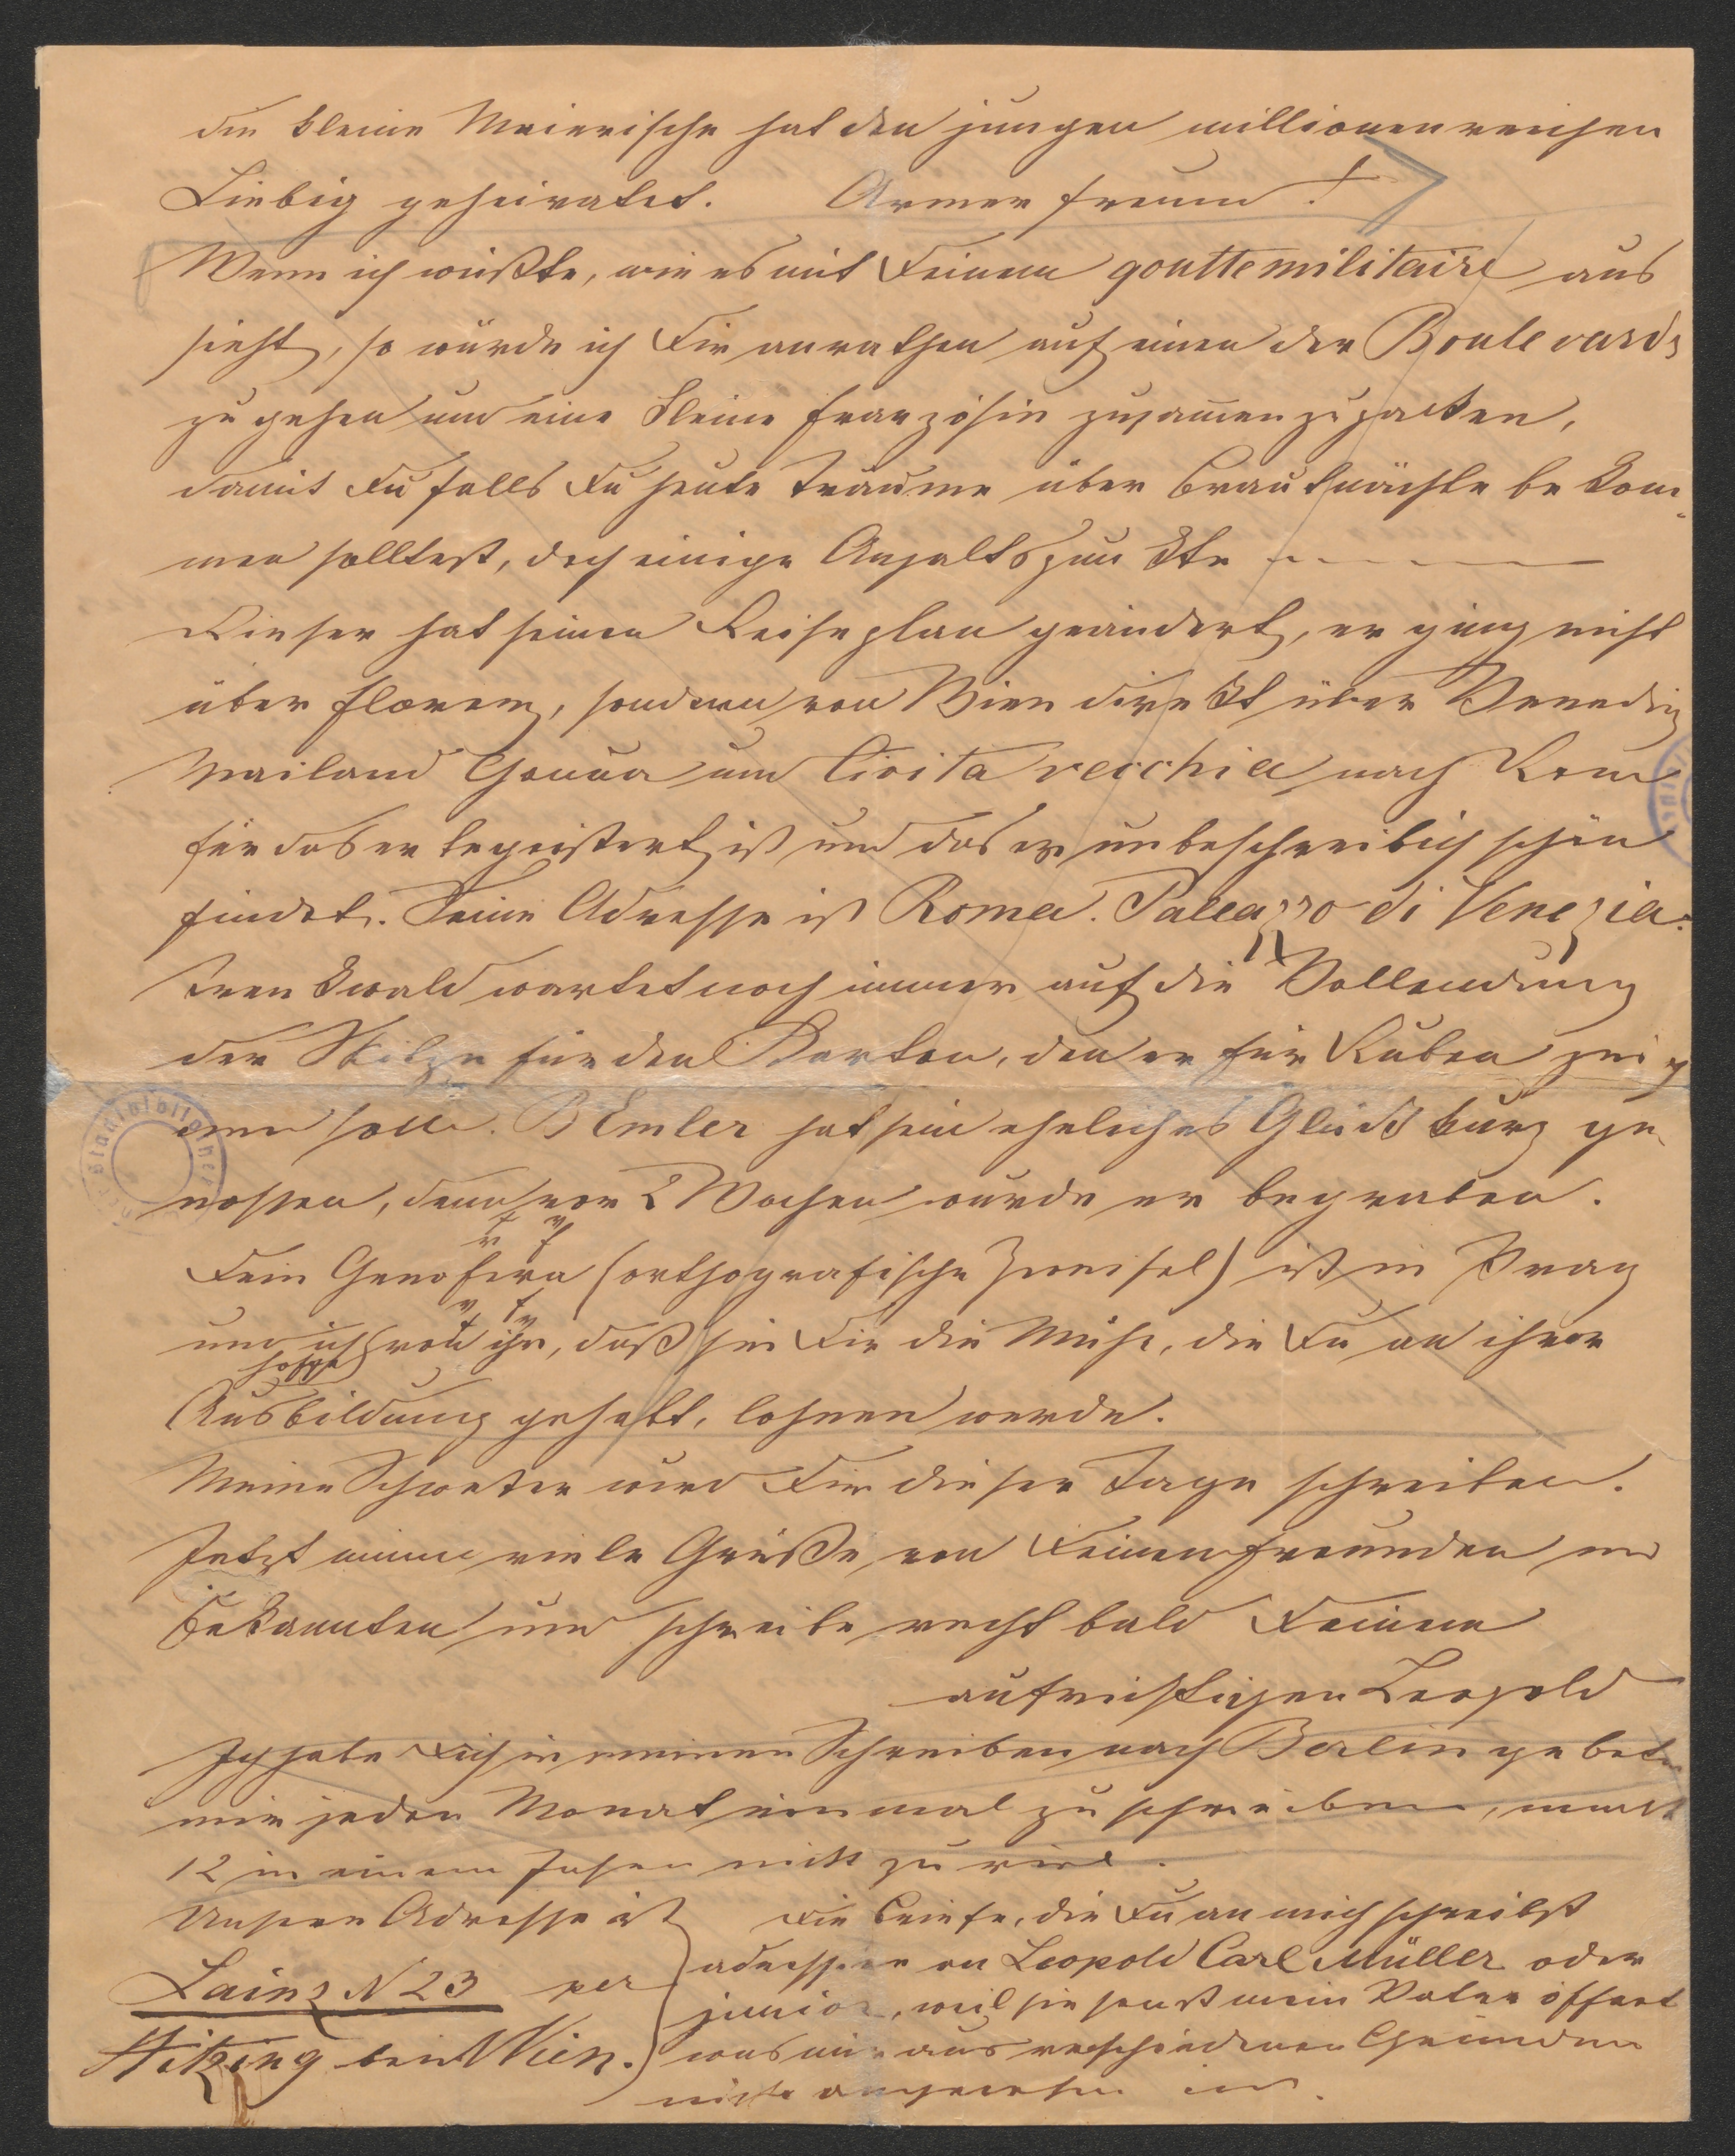 die kleine Meierische hat den jungen millionenreichen
Liebig geheiratet. Armer Freund!
Wenn ich wüßte, wie es mit Deinem goutte militaire aus
sieht, so würde ich Dir anrathen auf einen der Boulevards
zu gehen und eine kleine Französin zusammenzupacken,
damit Du falls Du heute Träume über Brautnächte bekom¬
men solltest, doch einige Anhaltspunkte - - - - -
Rieser hat seinen Reiseplan geändert, er ging nicht
über Florenz, sondern von Wien direkt über Venedig
Mailand Genua und Civita vecchia nach Rom
für das er begeistert ist und das er unbeschreiblich schön
findet. Seine Adresse ist Roma. Palazzo di Venezia.
Trenkwald wartet noch immer auf die Vollendung
der Skitze für den Karton, den er für Ruben
soll. Emler hat sein eheliches Glück kurz ge¬
nossen, denn vor 2 Wochen wurde er begraben.
Dein Genofeva (orthografische Zweifel) ist in Prag
und ich hoffe von ihr, daß sie Dir die Mühe, die Du an ihrer
Ausbildung gehabt, lohnen werde.
Meine Schwester wird Dir dieser Tage schreiben.
Jetzt nimm viele Grüße von Deinen Freunden und
Bekannten und schreibe recht bald Deinem
aufrichtigen Leopold
Ich habe Dich in meinem Schreiben nach Berlin gebeten
mir jeden Monat einmal zu schreiben, macht
12 in einem Jahr nicht zu viel.
Unsere Adresse ist
Lainz N 23 per
Hitzing bei Wien.
Die Briefe, die Du an mich schreibst
adressire an Leopold Carl Müller oder
junior, weil sie sonst mein Vater öffnet
was mir aus verschiedenen Gründen
nicht angenehm ist.